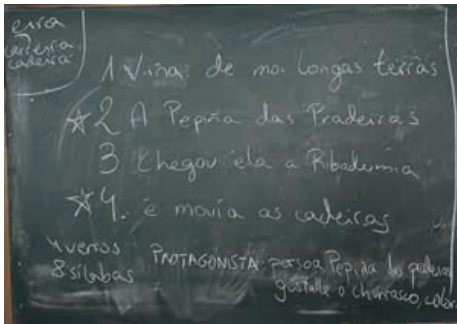 eira
carteira
cadeira
1 Viña de moi longas terras
☆2 A Pepiña das Pradeiras
3 Chegou ela a Ribadumia
☆4. e movía as cadeiras
4 versos
8 sílabas
PROTAGONISTA: persoa, Pepiña das pradeiras
gústalle o churrasco, color